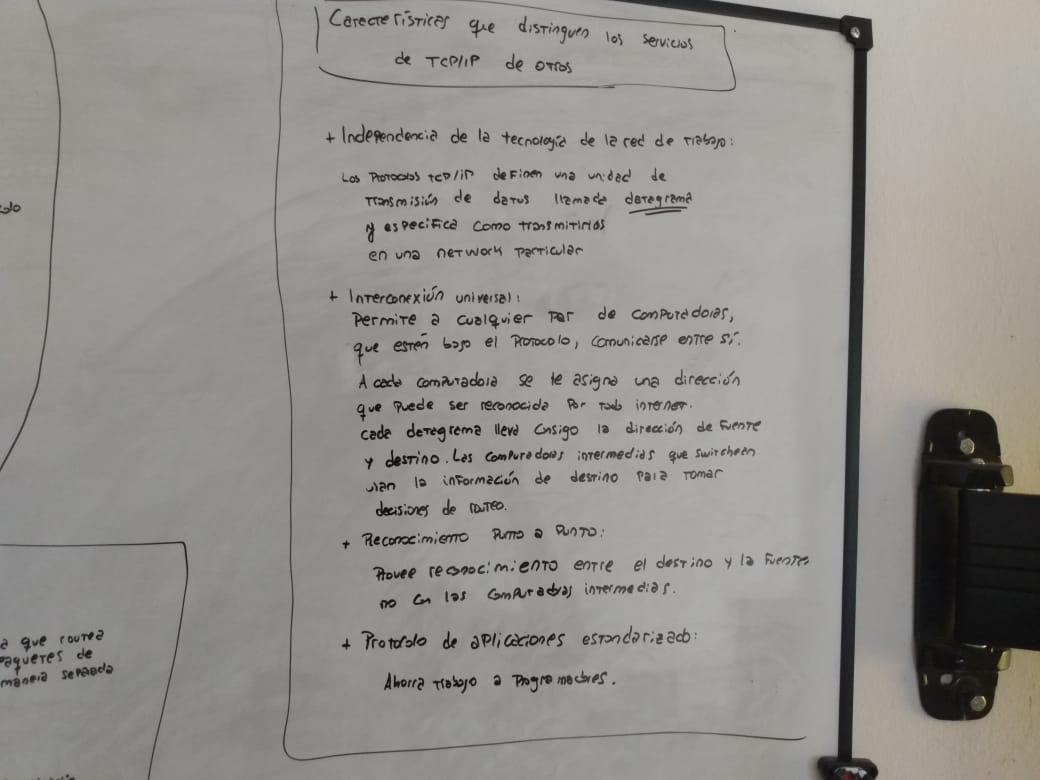 Características que distinguen los servicios
de TCP/IP de otros
+ Independencia de la tecnología de la red de trabajo:
Los Protocolos TCP/IP definen una unidad de
transmisión de datos llamada datagrama
y especifica como transmitirlos
en una network particular
+ Interconexión universal:
Permite a cualquier par de computadoras,
que estén bajo el Protocolo, comunicarse entre sí.
A cada computadora se le asigna una dirección
que puede ser reconocida por todo internet.
cada datagrama lleva consigo la dirección de fuente
y destino. Las computadoras intermedias que switcheen
usan la información de destino para tomar
decisiones de routeo.
+ Reconocimiento Punto a Punto:
Provee reconocimiento entre el destino y la fuente
no con las computadoras intermedias.
+ Protocolo de aplicaciones estandarizado:
Ahorra trabajo a Programadores.
a que routea
paquetes de
manera separada